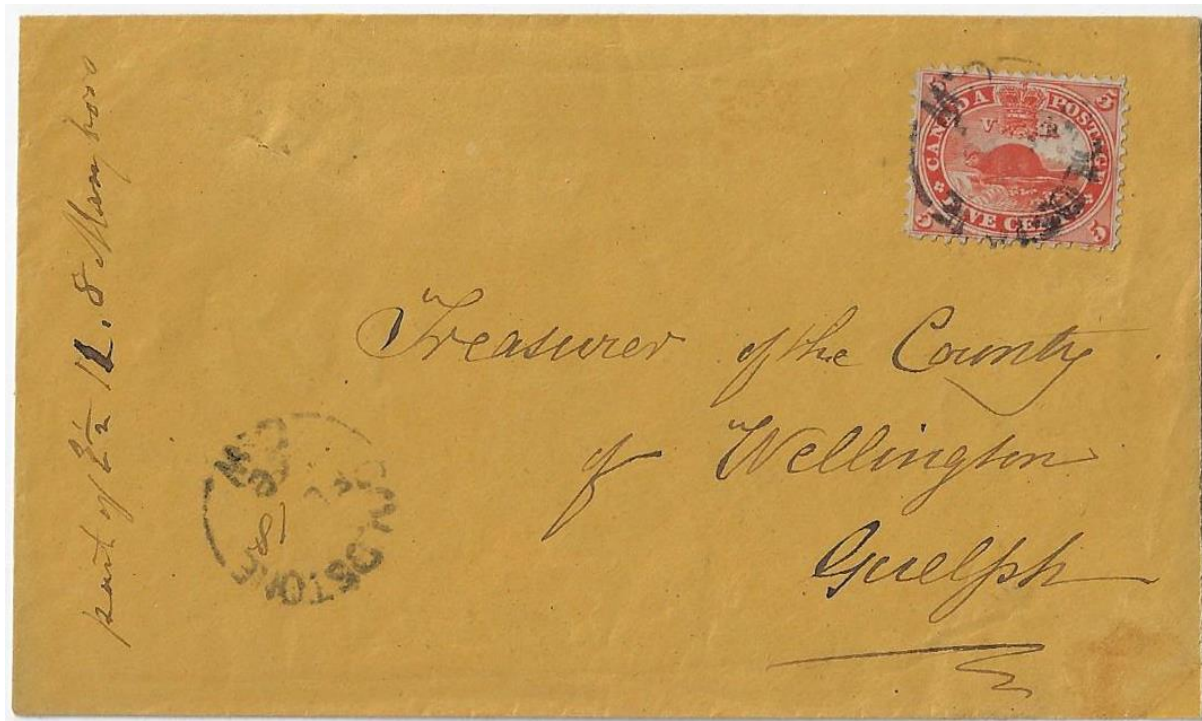 part of E½ 12. 8 Maryboro
5 CANADA POSTAGE 5
V R
5 FIVE CENTS 5
Treasurer of the County
of Wellington
Guelph